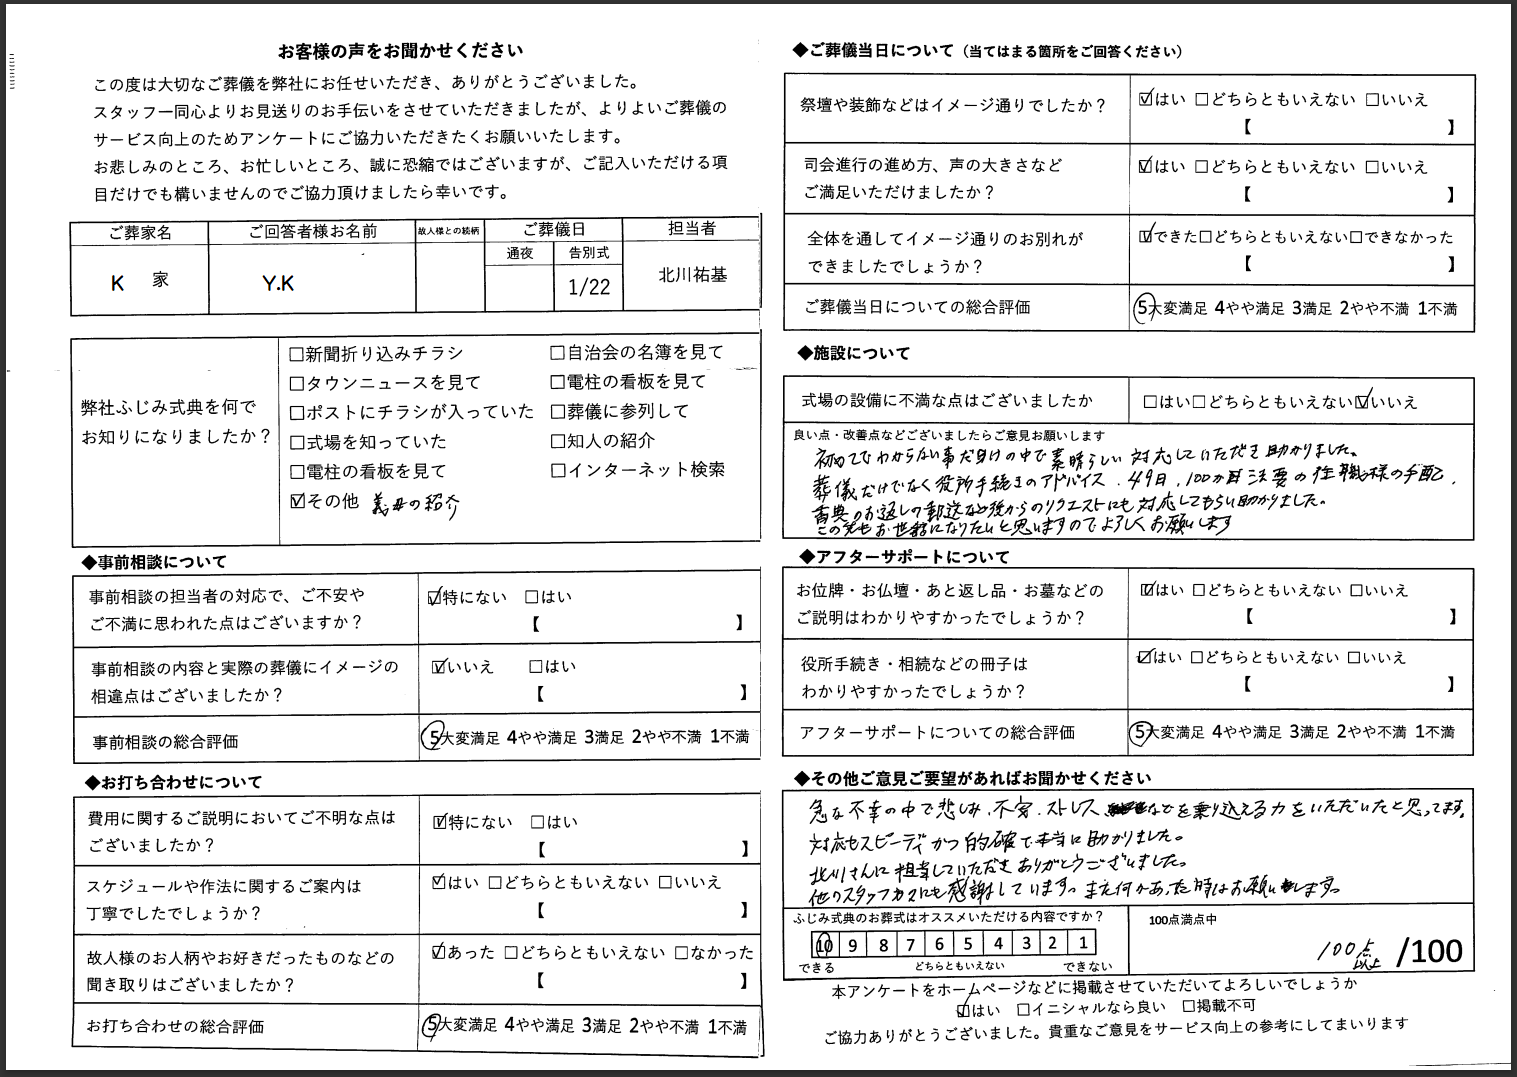 お客様の声をお聞かせください
この度は大切なご葬儀を弊社にお任せいただき、ありがとうございました。
スタッフ一同心よりお見送りのお手伝いをさせていただきましたが、よりよいご葬儀の
サービス向上のためアンケートにご協力いただきたくお願いいたします。
お悲しみのところ、お忙しいところ、誠に恐縮ではございますが、ご記入いただける項
目だけでも構いませんのでご協力頂けましたら幸いです。
ご葬家名 ご回答者様お名前 故人様との続柄 ご葬儀日 担当者
通夜 告別式
K 家 Y.K 1/22 北川祐基
弊社ふじみ式典を何で
お知りになりましたか？
☐新聞折り込みチラシ ☐自治会の名簿を見て
☐タウンニュースを見て ☐電柱の看板を見て
☐ポストにチラシが入っていた ☐葬儀に参列して
☐式場を知っていた ☐知人の紹介
☐電柱の看板を見て ☐インターネット検索
☑その他 義母の紹介
◆事前相談について
事前相談の担当者の対応で、ご不安や
ご不満に思われた点はございますか？
☑特にない ☐はい
【 】
事前相談の内容と実際の葬儀にイメージの
相違点はございましたか？
☑いいえ ☐はい
【 】
事前相談の総合評価 5大変満足 4やや満足 3満足 2やや不満 1不満
◆お打ち合わせについて
費用に関するご説明においてご不明な点は
ございましたか？
☑特にない ☐はい
【 】
スケジュールや作法に関するご案内は
丁寧でしたでしょうか？
☑はい ☐どちらともいえない ☐いいえ
【 】
故人様のお人柄やお好きだったものなどの
聞き取りはございましたか？
☑あった ☐どちらともいえない ☐なかった
【 】
お打ち合わせの総合評価 5大変満足 4やや満足 3満足 2やや不満 1不満
◆ご葬儀当日について（当てはまる箇所をご回答ください）
祭壇や装飾などはイメージ通りでしたか？
☑はい ☐どちらともいえない ☐いいえ
【 】
司会進行の進め方、声の大きさなど
ご満足いただけましたか？
☑はい ☐どちらともいえない ☐いいえ
【 】
全体を通してイメージ通りのお別れが
できましたでしょうか？
☑できた☐どちらともいえない☐できなかった
【 】
ご葬儀当日についての総合評価 5大変満足 4やや満足 3満足 2やや不満 1不満
◆施設について
式場の設備に不満な点はございましたか ☐はい☐どちらともいえない☑いいえ
良い点・改善点などございましたらご意見お願いします
初めてでわからない事だらけの中で素晴らしい対応していただき助かりました。
葬儀だけでなく役所手続きのアドバイス、49日、100か日法要の住職様の手配、
香典のお返しの郵送など後からのリクエストにも対応してもらい助かりました。
この先もお世話になりたいと思いますのでよろしくお願いします
◆アフターサポートについて
お位牌・お仏壇・あと返し品・お墓などの
ご説明はわかりやすかったでしょうか？
☑はい ☐どちらともいえない ☐いいえ
【 】
役所手続き・相続などの冊子は
わかりやすかったでしょうか？
☑はい ☐どちらともいえない ☐いいえ
【 】
アフターサポートについての総合評価 5大変満足 4やや満足 3満足 2やや不満 1不満
◆その他ご意見ご要望があればお聞かせください
急な不幸の中で悲しみ、不安、ストレス などを乗り込える力をいただいたと思ってます。
対応もスピーディかつ的確で本当に助かりました。
北川さんに担当していただきありがとうございました。
他のスタッフ方にも感謝しています。また何かあった時はお願いします。
ふじみ式典のお葬式はオススメいただける内容ですか？
10 9 8 7 6 5 4 3 2 1
できる どちらともいえない できない
100点満点中
100点以上 /100
本アンケートをホームページなどに掲載させていただいてよろしいでしょうか
☑はい ☐イニシャルなら良い ☐掲載不可
ご協力ありがとうございました。貴重なご意見をサービス向上の参考にしてまいります